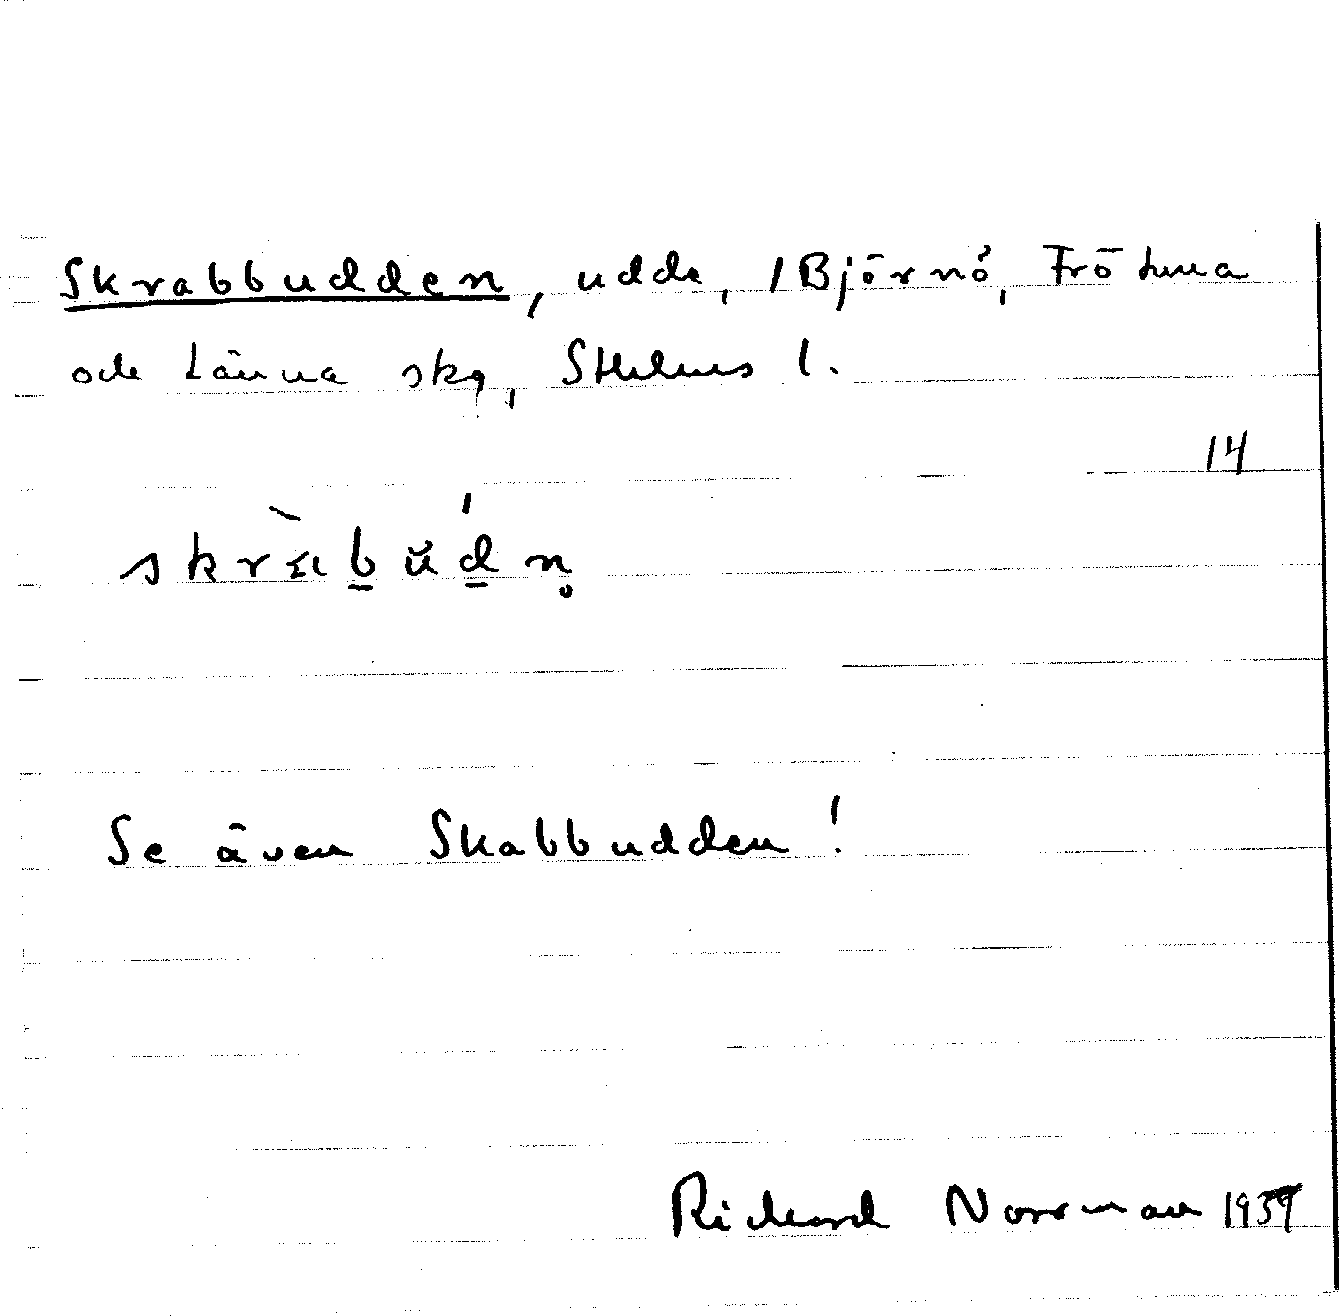 Skrabbudden, udde, 1 Björnö, Frötuna
och Länna skg, Sthlms l.
14
Se även Skabbudden!
Richard Norrman 1939